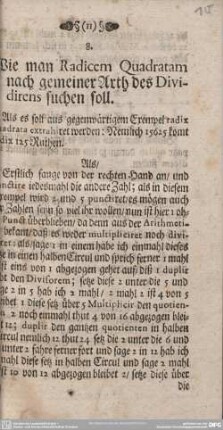 (11)
8.
Wie man Radicem Quadratam
nach gemeiner Arth des Divi-
direns suchen soll.
Als es soll aus gegenwärtigem Exempel radix
quadrata extrahiret werden: Nemlich 15625 komt
radix 125 Ruthen.
Als/
Erstlich fange von der rechten Hand an/ und
punctire iedesmahl die andere Zahl; als in diesem
Exempel wird 2. und 5 punctiret es mögen auch
Zahlen seyn so viel ihr wollen/ nun ist hier 1 oh-
überblieben/ da denn aus der Arithmeti-
bekant/ daß es weder multipliciret noch divi-
als sage: 1 in einem habe ich einmahl dieses
in einen halben Circul und sprich ferner 1 mahl
ist eins von 1 abgezogen gehet auf/ diß 1 duplir
den Divisorem; setze diese 2 unter die 5 und
2 in 5 hab ich 2 mahl/ 2 mahl 2 ist 4 von 5
1 diese setz über 5 Multiplicir den quotien-
noch einmahl thut 4 von 16 abgezogen blei-
125 duplir den gantzen quotienten in halben
Circul nemlich 12 thut 24 setz die 2 unter die 6 und
unter 2 fahre ferner fort und sage 2 in 12 hab ich
mahl diese setz in halben Circul und sage 2 mahl
ist 10 von 12 abgezogen bleibet 2/ setze diese über
die